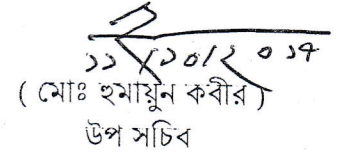 ১১/১০/২০১৭
( মোঃ হুমায়ুন কবীর )
উপ সচিব